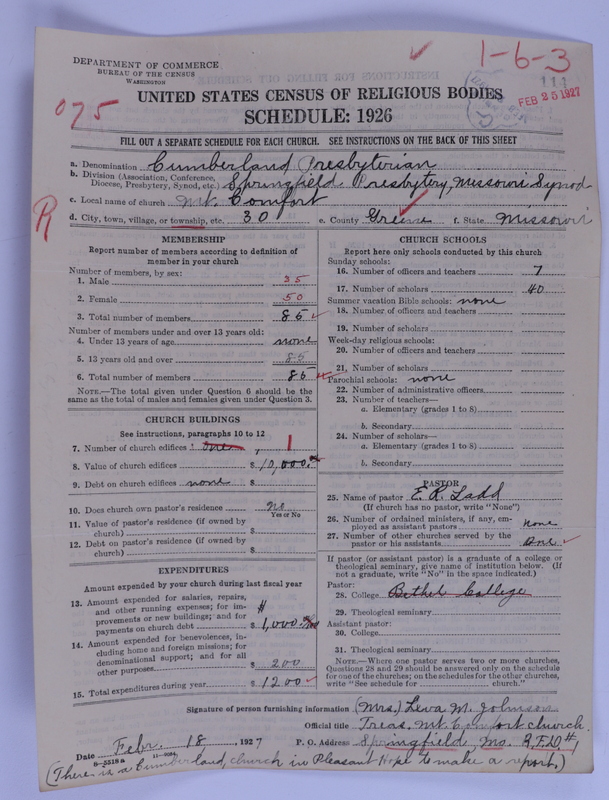 1-6-3
DEPARTMENT OF COMMERCE
BUREAU OF THE CENSUS
WASHINGTON
111
FEB 25 1927
075
UNITED STATES CENSUS OF RELIGIOUS BODIES
SCHEDULE: 1926
FILL OUT A SEPARATE SCHEDULE FOR EACH CHURCH. SEE INSTRUCTIONS ON THE BACK OF THIS SHEET
a. Denomination Cumberland Presbyterian
b. Division (Association, Conference,
Diocese, Presbytery, Synod, etc.) Springfield Presbytery, Missouri Synod
c. Local name of church Mt. Comfort
R
d. City, town, village, or township, etc. 30 e. County Greene f. State Missouri
MEMBERSHIP
Report number of members according to definition of
member in your church
Number of members, by sex:
1. Male 35
2. Female 50
3. Total number of members 85
Number of members under and over 13 years old:
4. Under 13 years of age none
5. 13 years old and over 85
6. Total number of members 85
NOTE.—The total given under Question 6 should be the
same as the total of males and females given under Question 3.
CHURCH BUILDINGS
See instructions, paragraphs 10 to 12
7. Number of church edifices one 1
8. Value of church edifices $ 10,000.
9. Debt on church edifices none $
10. Does church own pastor's residence no
Yes or No
11. Value of pastor's residence (if owned by
church) $
12. Debt on pastor's residence (if owned by
church) $
EXPENDITURES
Amount expended by your church during last fiscal year
13. Amount expended for salaries, repairs,
and other running expenses; for im-
provements or new buildings; and for
payments on church debt $ 1,000.
14. Amount expended for benevolences, in-
cluding home and foreign missions; for
denominational support; and for all
other purposes $ 200
15. Total expenditures during year $ 1200
CHURCH SCHOOLS
Report here only schools conducted by this church
Sunday schools:
16. Number of officers and teachers 7
17. Number of scholars 40
Summer vacation Bible schools: none
18. Number of officers and teachers
19. Number of scholars
Week-day religious schools:
20. Number of officers and teachers
21. Number of scholars
Parochial schools: none
22. Number of administrative officers
23. Number of teachers—
a. Elementary (grades 1 to 8)
b. Secondary
24. Number of scholars—
a. Elementary (grades 1 to 8)
b. Secondary
PASTOR
25. Name of pastor E. R. Ladd
(If church has no pastor, write "None")
26. Number of ordained ministers, if any, em-
ployed as assistant pastors none
27. Number of other churches served by the
pastor or his assistants one
If pastor (or assistant pastor) is a graduate of a college or
theological seminary, give name of institution below. (If
not a graduate, write "No" in the space indicated.)
Pastor:
28. College Bethel College
29. Theological seminary
Assistant pastor:
30. College
31. Theological seminary
NOTE.—Where one pastor serves two or more churches,
Questions 28 and 29 should be answered only on the schedule
for one of the churches; on the schedules for the other churches,
write "See schedule for church."
Signature of person furnishing information (Mrs.) Leva M. Johnson
Official title Treas. Mt. Comfort church.
Date Febr. 18, 1927 P. O. Address Springfield, Mo. R.F.D. #1
8-5518a
(There is a Cumberland church in Pleasant Hope to make a report.)